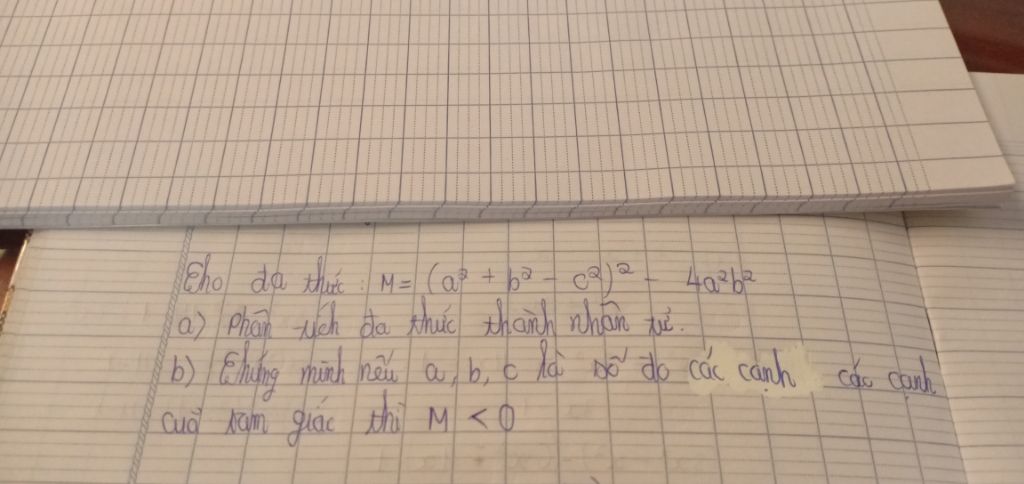 Cho đa thức : M = (a² + b² - c²)² - 4a²b²
a) Phân tích đa thức thành nhân tử.
b) Chứng minh nếu a, b, c là số đo các cạnh các cạnh
của tam giác thì M < 0